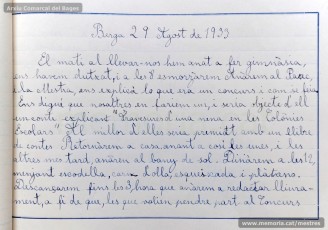 Arxiu Comarcal del Bages
Berga 29 Agost de 1933
El matí al llevar-nos hem anat a fer gimnàsia,
ens havem dutxat, i a les 8 esmorzàrem. Anàrem al Parc,
i la Mestra, ens explicà lo que era un concurs i com si feia.
Ens digué que nosaltres en fariem un, i seria objecte d'ell
un conte explicant "Travesures d'una nena en les Colònies
Escolars". El millor d'elles seria premiat amb un llibre
de contes. Retornàrem a casa, anant a cosí les unes, i les
altres més tard, anàrem al bany de sol. Dinàrem a les 12,
menjant escodella, carn d'olla, esqueixada i plàtans.
Descançàrem fins les 3, hora que anàrem a redactar lliura-
ment, a fi de que, les que volien pendre part al Concurs
www.memoria.cat/mestres